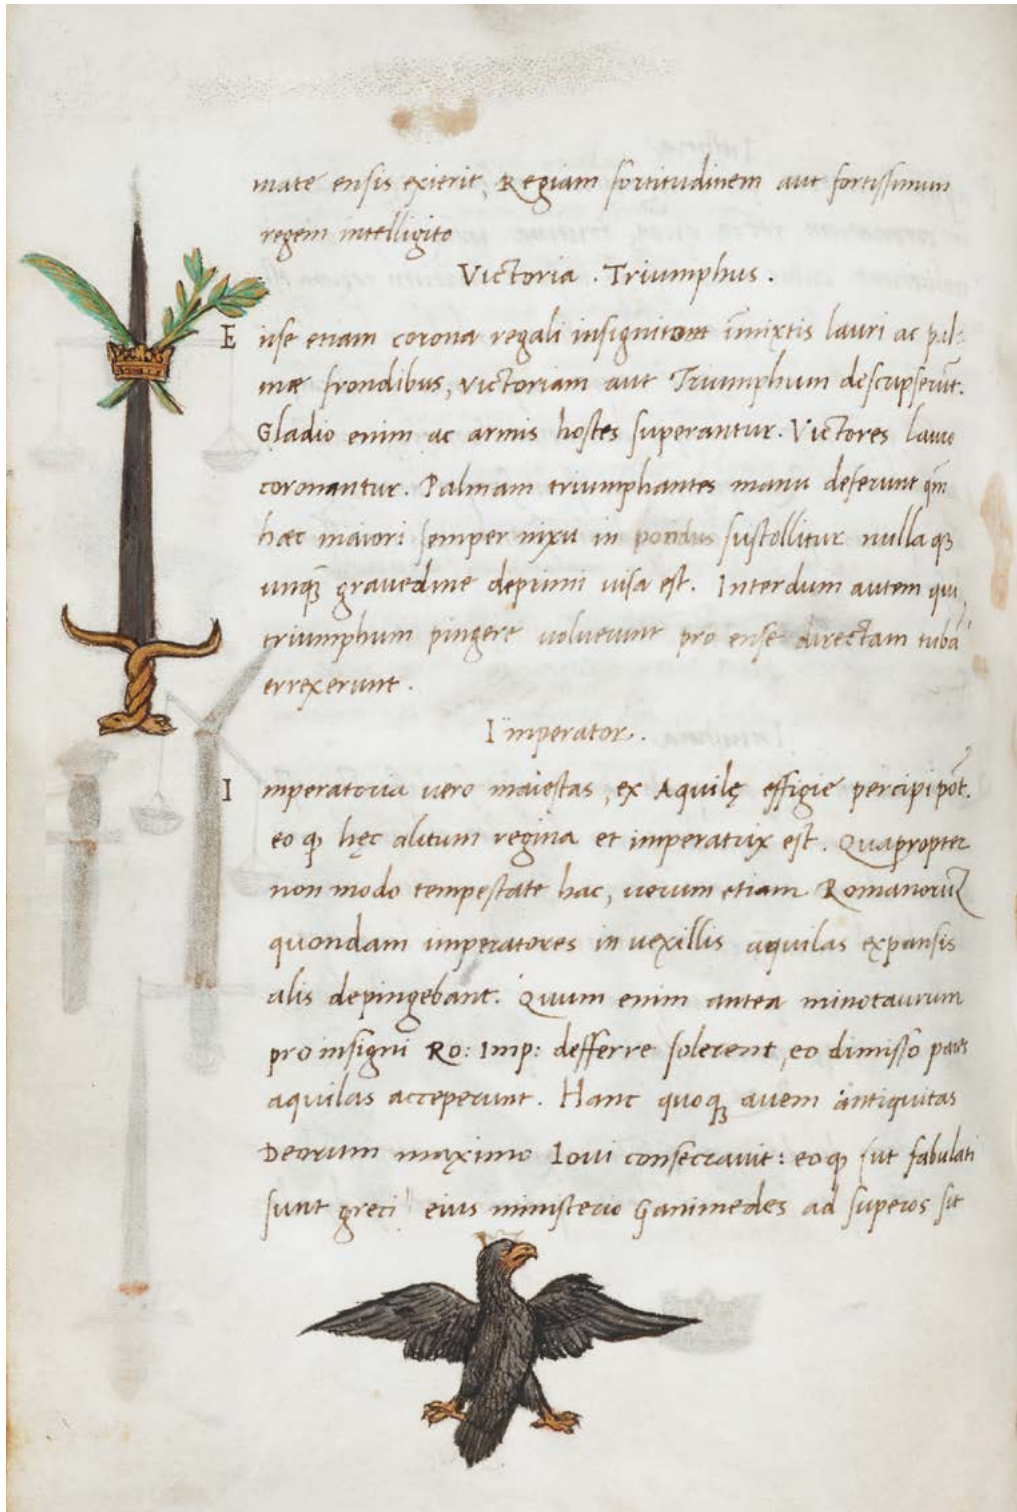 mate ensis exierit, Regiam fortitudinem aut fortissimum
regem intelligito
Victoria . Triumphus .
E nse etiam corona regali insignito īmixtis lauri ac pal-
mæ frondibus, victoriam aut Triumphum descripserūt.
Gladio enim ac armis hostes superantur. Victores lauro
coronantur. Palmam triumphantes manu deferunt qm̄
hæc maiori semper nixu in pondus sustollitur nullaqꝫ
unqꝫ̄ gravedine deprimi visa est. Interdum autem qui
triumphum pingere voluerunt pro ense directam tubā
errexerunt .
Imperator .
I mperatoria vero maiestas, ex Aquilę effigie percipi pōt.
eo ꝙ hęc alitum regina et imperatrix est. Quapropter
non modo tempestate hac, verum etiam Romanoruꝫ
quondam imperatores in vexillis aquilas expansis
alis depingebant. Quum enim antea minotaurum
pro insigni Ro: Imp: defferre solerent, eo dimisso
aquilas acceperunt. Hanc quoqꝫ avem antiquitas
Deorum maximo Iovi consecravit: eoqꝫ fabulati
sunt greci eius ministerio Ganimedes ad superos sit